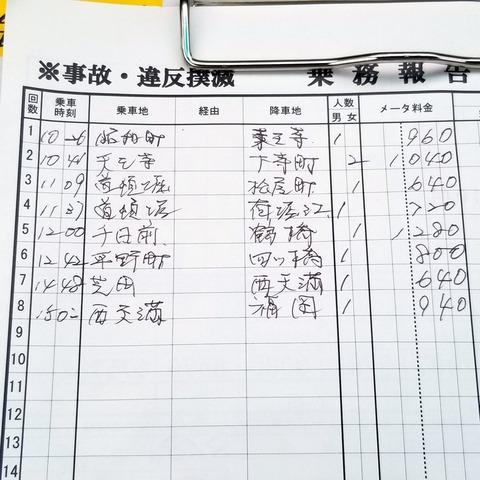 ※事故・違反撲滅 乗務報告
回数 乗車時刻 乗車地 経由 降車地 人数 男 女 メータ料金
1 10 26 昭和町 天王寺 1 960
2 10 41 天王寺 下寺町 2 1040
3 11 09 道頓堀 松屋町 1 640
4 11 37 道頓堀 南堀江 1 720
5 12 00 千日前 鶴橋 1 1280
6 12 42 平野町 四ツ橋 1 800
7 14 48 芝田 西天満 1 640
8 1502 西天満 福 1 940
9
10
11
12
13
14